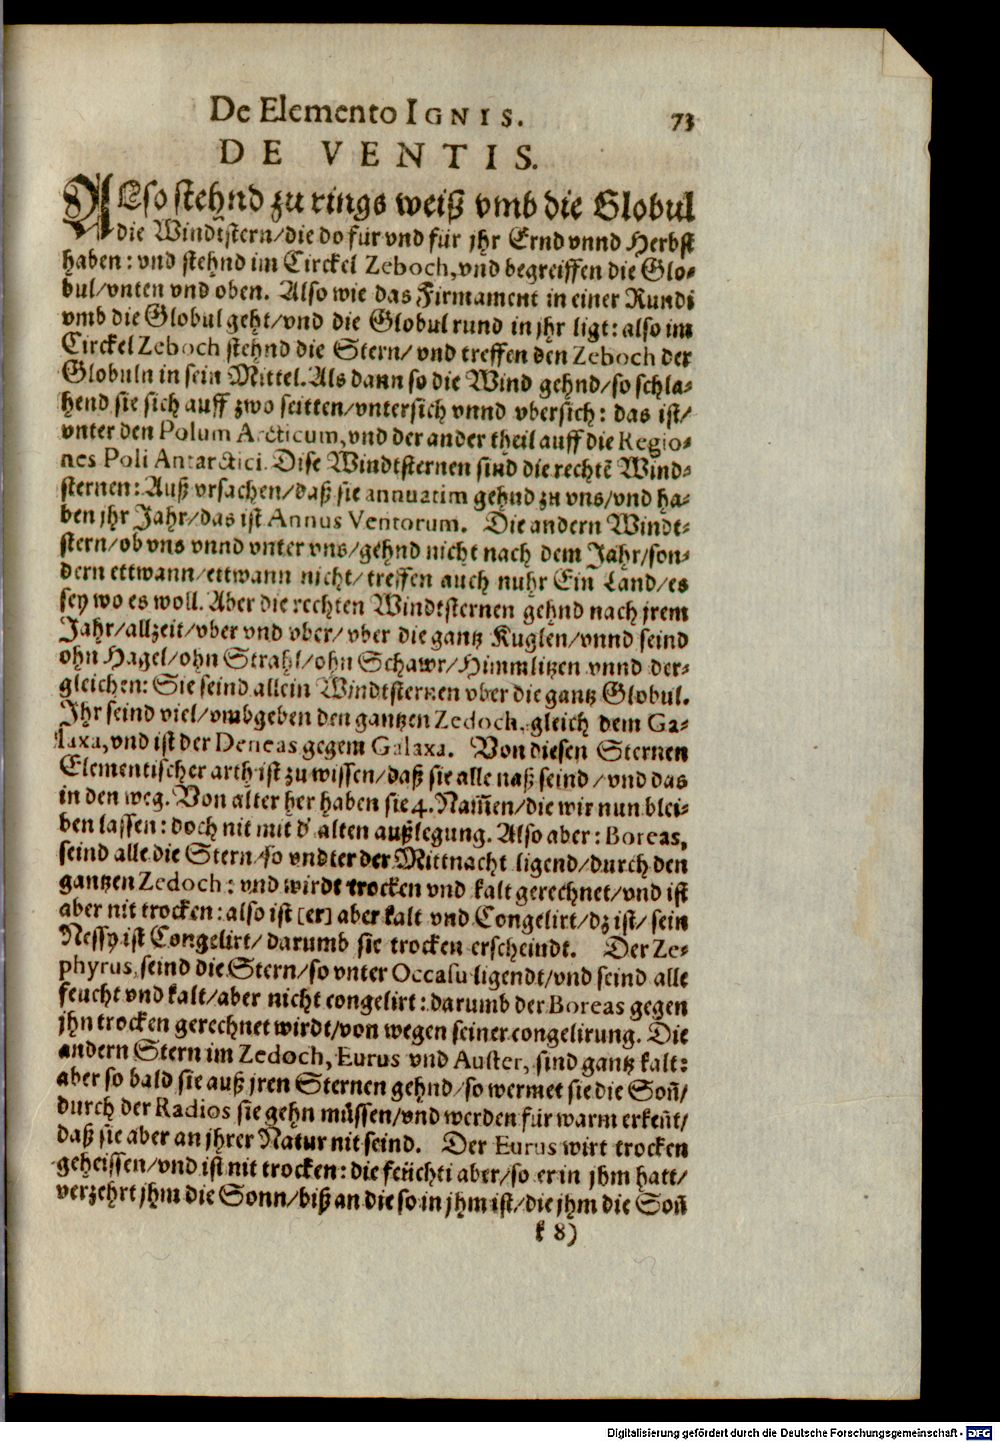 De Elemento IGNIS. 73
DE VENTIS.
ALso stehnd zu rings weiß vmb die Globul
die Windtstern/die do für vnd für jhr Ernd vnnd Herbst
haben: vnd stehnd im Circkel Zeboch, vnd begreiffen die Glo-
bul/vnten vnd oben. Also wie das Firmament in einer Rundi
vmb die Globul geht/vnd die Globul rund in jhr ligt: also im
Circkel Zeboch stehnd die Stern/vnd treffen den Zeboch der
Globuln in sein Mittel. Als dann so die Wind gehnd/so schla-
hend sie sich auff zwo seitten/vntersich vnnd vbersich: das ist/
vnter den Polum Arcticum, vnd der ander theil auff die Regio-
nes Poli Antarctici. Dise Windtsternen sind die rechtē Wind-
sternen: Auß vrsachen/daß sie annuatim gehnd zu vns/vnd ha-
ben jhr Jahr/das ist Annus Ventorum. Die andern Windt-
stern/ob vns vnnd vnter vns/gehnd nicht nach dem Jahr/son-
dern ettwann/ettwann nicht/treffen auch nuhr Ein Land/es
sey wo es woll. Aber die rechten Windtsternen gehnd nach jrem
Jahr/allzeit/vber vnd vber/vber die gantz Kuglen/vnnd seind
ohn Hagel/ohn Strahl/ohn Schawr/Himmlitzen vnnd der-
gleichen: Sie seind allein Windtsternen vber die gantz Globul.
Ihr seind viel/vmbgeben den gantzen Zedoch, gleich dem Ga-
laxa, vnd ist der Deneas gegem Galaxa. Von diesen Sternen
Elementischer arth ist zu wissen/daß sie alle naß seind/vnd das
in den weg. Von alter her haben sie 4. Nam̄en/die wir nun blei-
ben lassen: doch nit mit d' alten außlegung. Also aber: Boreas,
seind alle die Stern/so vndter der Mittnacht ligend/durch den
gantzen Zedoch: vnd wirdt trocken vnd kalt gerechnet/vnd ist
aber nit trocken: also ist [er] aber kalt vnd Congelirt/dz ist/sein
Nessy ist Congelirt/darumb sie trocken erscheindt. Der Ze-
phyrus, seind die Stern/so vnter Occasu ligendt/vnd seind alle
feucht vnd kalt/aber nicht congelirt: darumb der Boreas gegen
jhn trocken gerechnet wirdt/von wegen seiner congelirung. Die
andern Stern im Zedoch, Eurus vnd Auster, sind gantz kalt:
aber so bald sie auß jren Sternen gehnd/so wermet sie die Son̄/
durch der Radios sie gehn müssen/vnd werden für warm erken̄t/
daß sie aber an jhrer Natur nit seind. Der Eurus wirt trocken
geheissen/vnd ist nit trocken: die feüchti aber/so er in jhm hatt/
verzehrt jhm die Sonn/biß an die so in jhm ist/die jhm die Son̄
k 8)
Digitalisierung gefördert durch die Deutsche Forschungsgemeinschaft - DFG